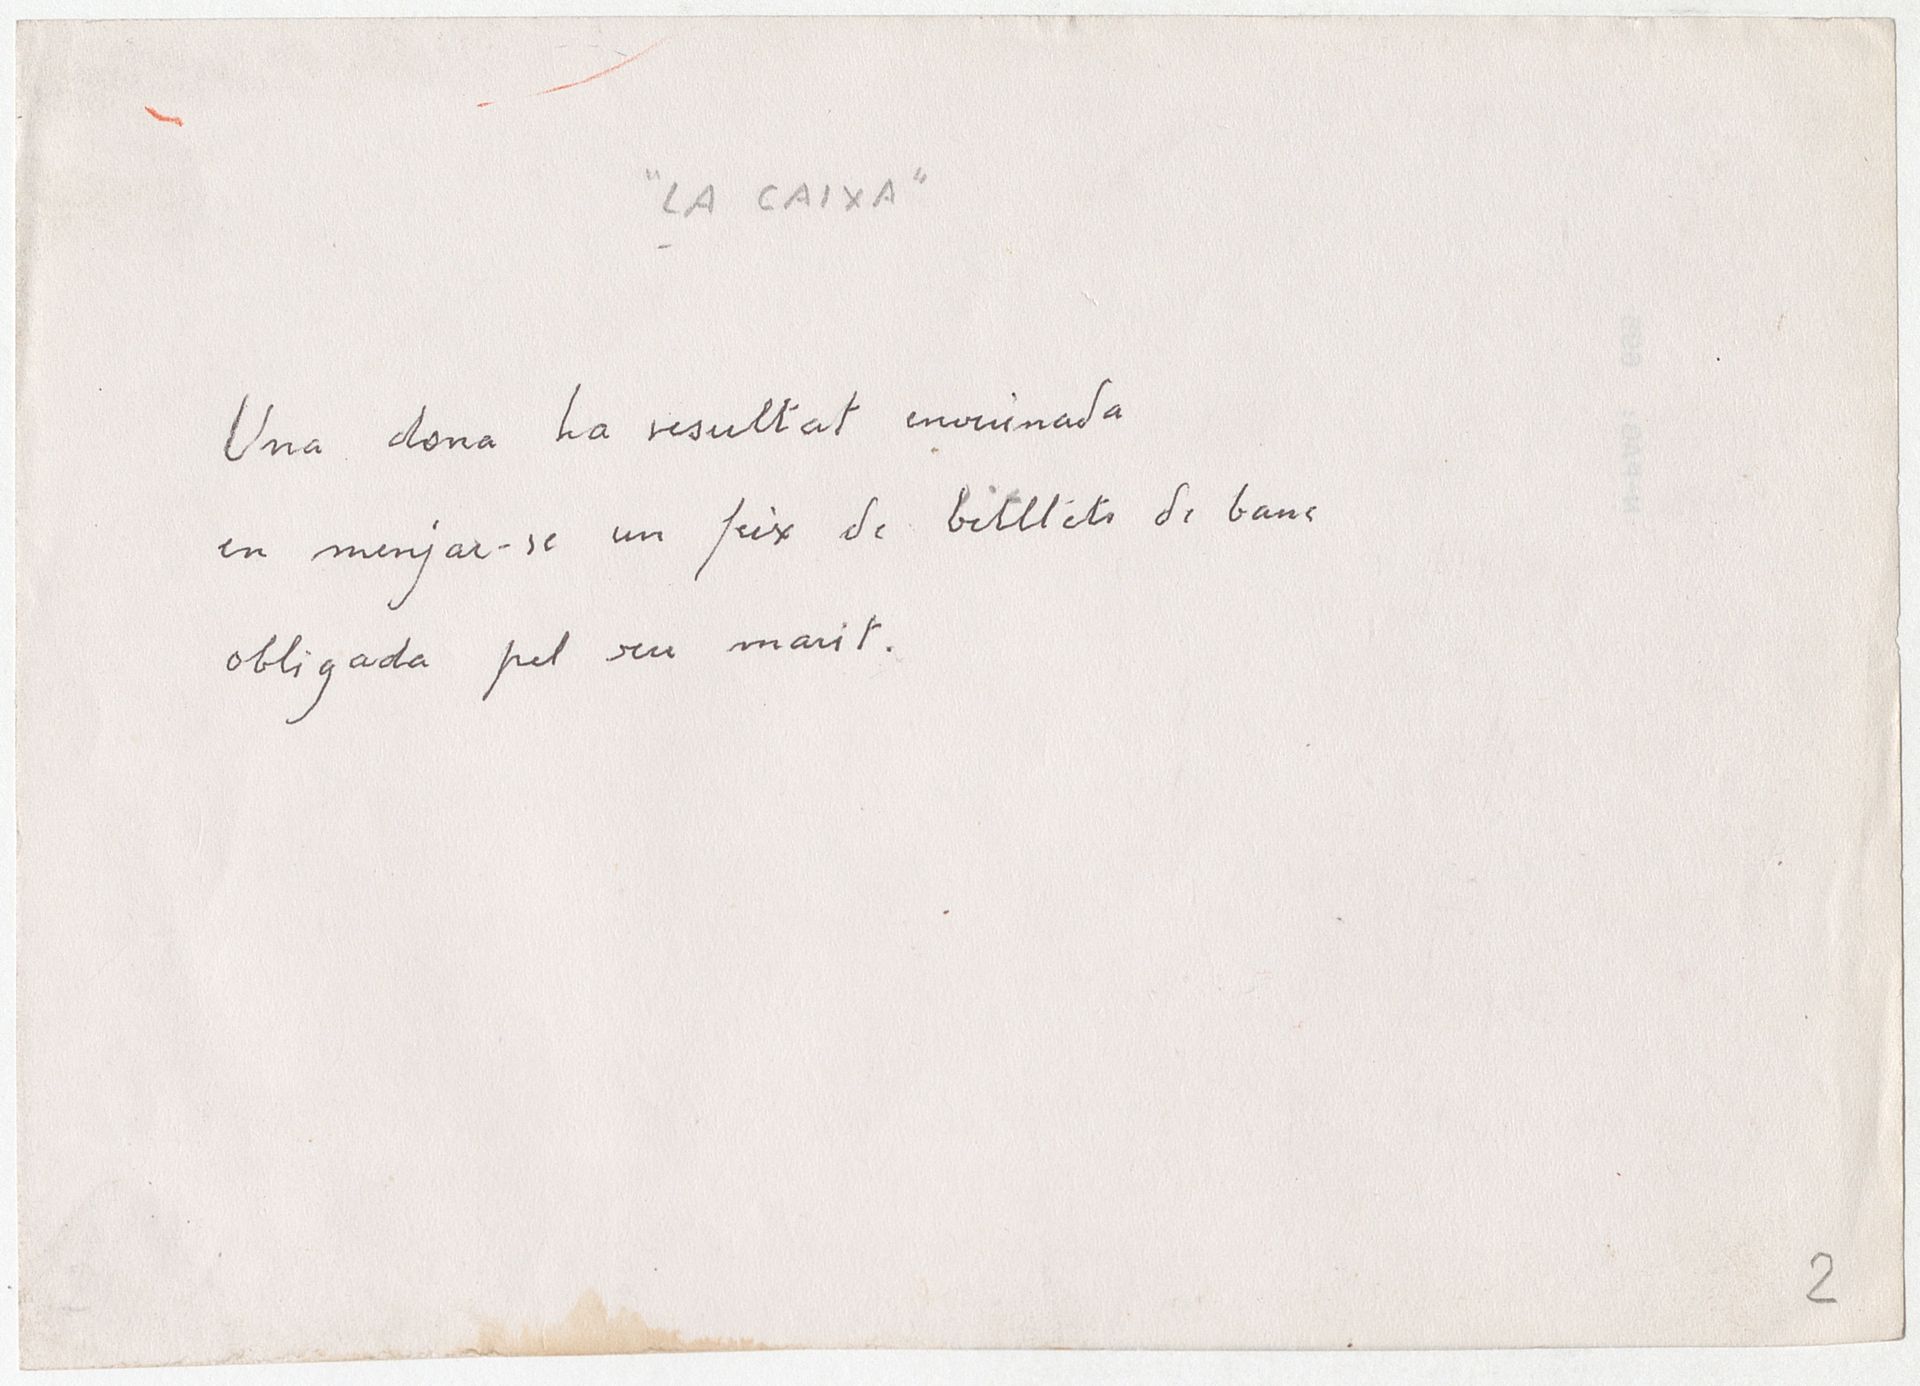 "LA CAIXA"
Una dona ha resultat enverinada
en menjar-se un feix de bitllets de banc
obligada pel seu marit.
2